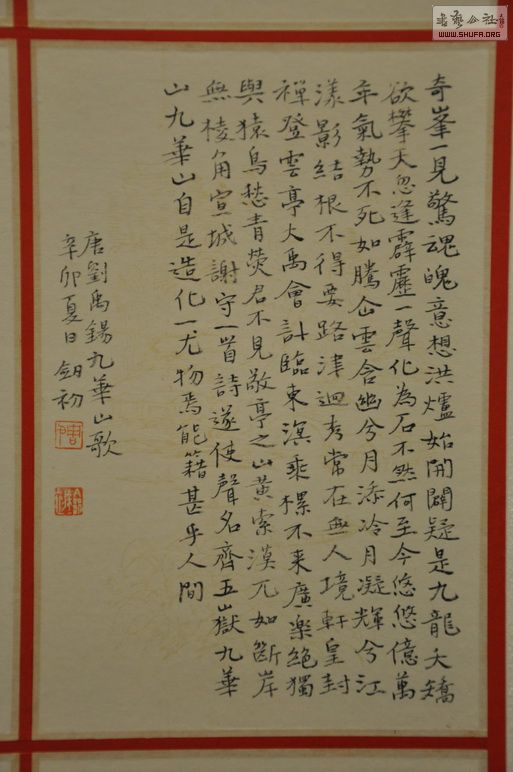 奇峯一見驚魂魄意想洪爐始開闢疑是九龍夭矯
欲攀天忽逢霹靂一聲化為石不然何至今悠悠億萬
年氣勢不死如騰仚雲含幽兮月添冷月凝輝兮江
漾影結根不得要路津迴秀常在無人境軒皇封
禪登雲亭大禹會計臨東溟乘樏不来廣樂絕獨
與猿鳥愁青熒君不見敬亭之山黄索漠兀如断岸
無棱角宣城謝守一首詩遂使聲名齊五嶽九華
山九華山自是造化一尤物焉能籍甚乎人間
唐劉禹錫九華山歌
辛卯夏日釰初
書藝公社
WWW.SHUFA.ORG